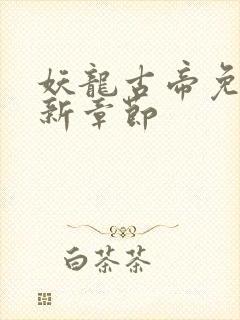 妖龍古帝免
新章節
白茶茶